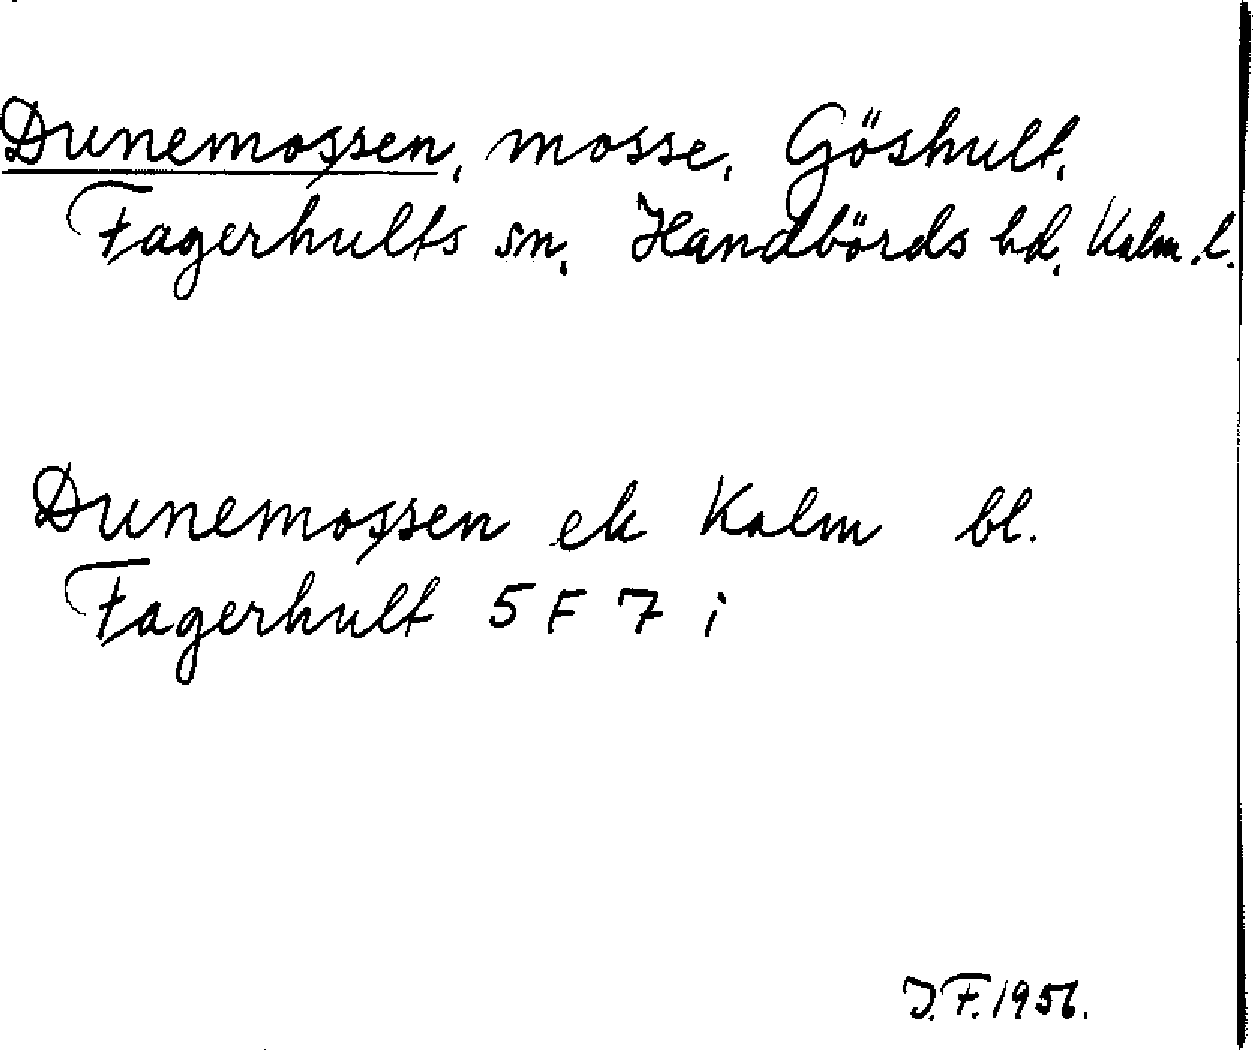 Dunemossen, mosse, Göshult,
Fagerhults sn, Handbörds hd, Kalm. l.
Dunemossen ek Kalm bl.
Fagerhult 5 F 7 i
J.F. 1956.